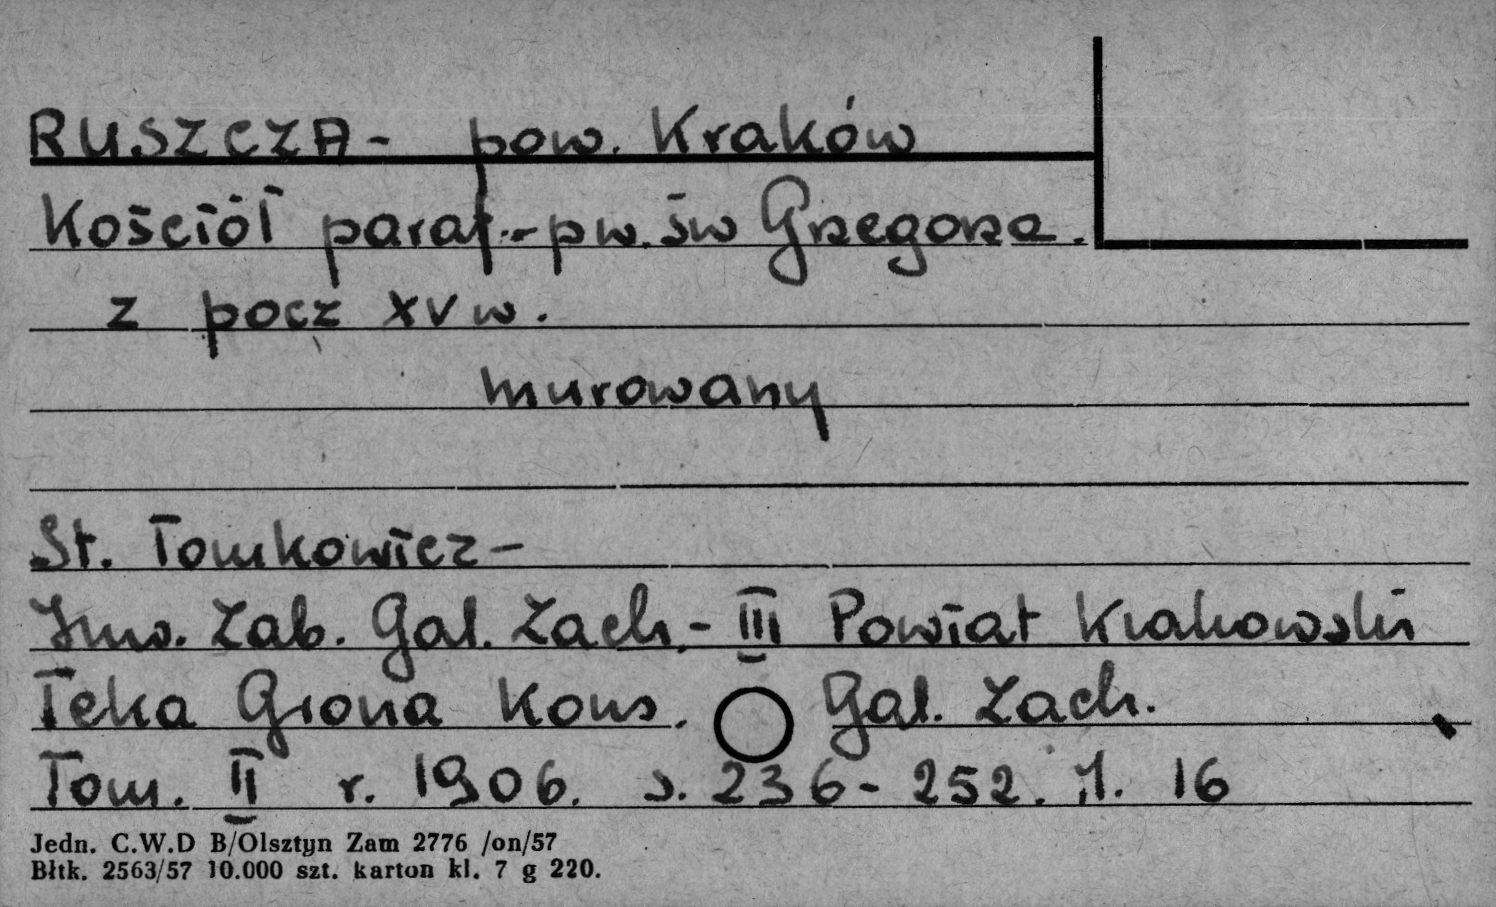 RUSZCZA - pow. Kraków
Kościół paraf. - pw. św Grzegorza.
z pocz XV w.
murowany
St. Tomkowicz -
Inw. Zab. Gal. Zach. - III Powiat Krakowski
Teka Grona Kons. Gal. Zach.
Tom. II r. 1906. s. 236 - 252. il. 16
Jedn. C.W.D B/Olsztyn Zam 2776 /on/57
Błtk. 2563/57 10.000 szt. karton kl. 7 g 220.